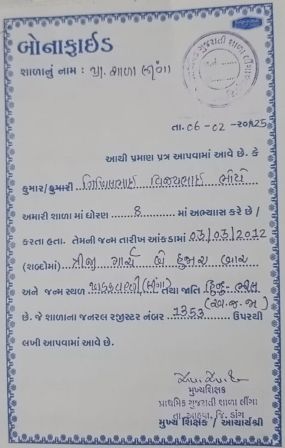 બોનાફાઈડ
શાળાનું નામ : પ્રા. શાળા લીંગા
તા. 06 - 02 - ૨૦૧25
આથી પ્રમાણ પત્ર આપવામાં આવે છે. કે
કુમાર/કુમારી વિજયભાઈ
અમારી શાળા માં ધોરણ 8 માં અભ્યાસ કરે છે /
કરતા હતા. તેમની જન્મ તારીખ આંકડામાં 03/03/2012
(શબ્દોમાં) ત્રીજી માર્ચ બે હજાર બાર
અને જન્મ સ્થળ (લીંગા) તથા જાતિ હિન્દુ - ભીલ
(અ.જ.જા)
છે. જે શાળાના જનરલ રજીસ્ટર નંબર 1353 ઉપરથી
લખી આપવામાં આવે છે.
મુખ્યશિક્ષક
પ્રાથમિક ગુજરાતી શાળા લીંગા
તા. આહવા, જિ. ડાંગ
મુખ્ય શિક્ષક / આચાર્યશ્રી